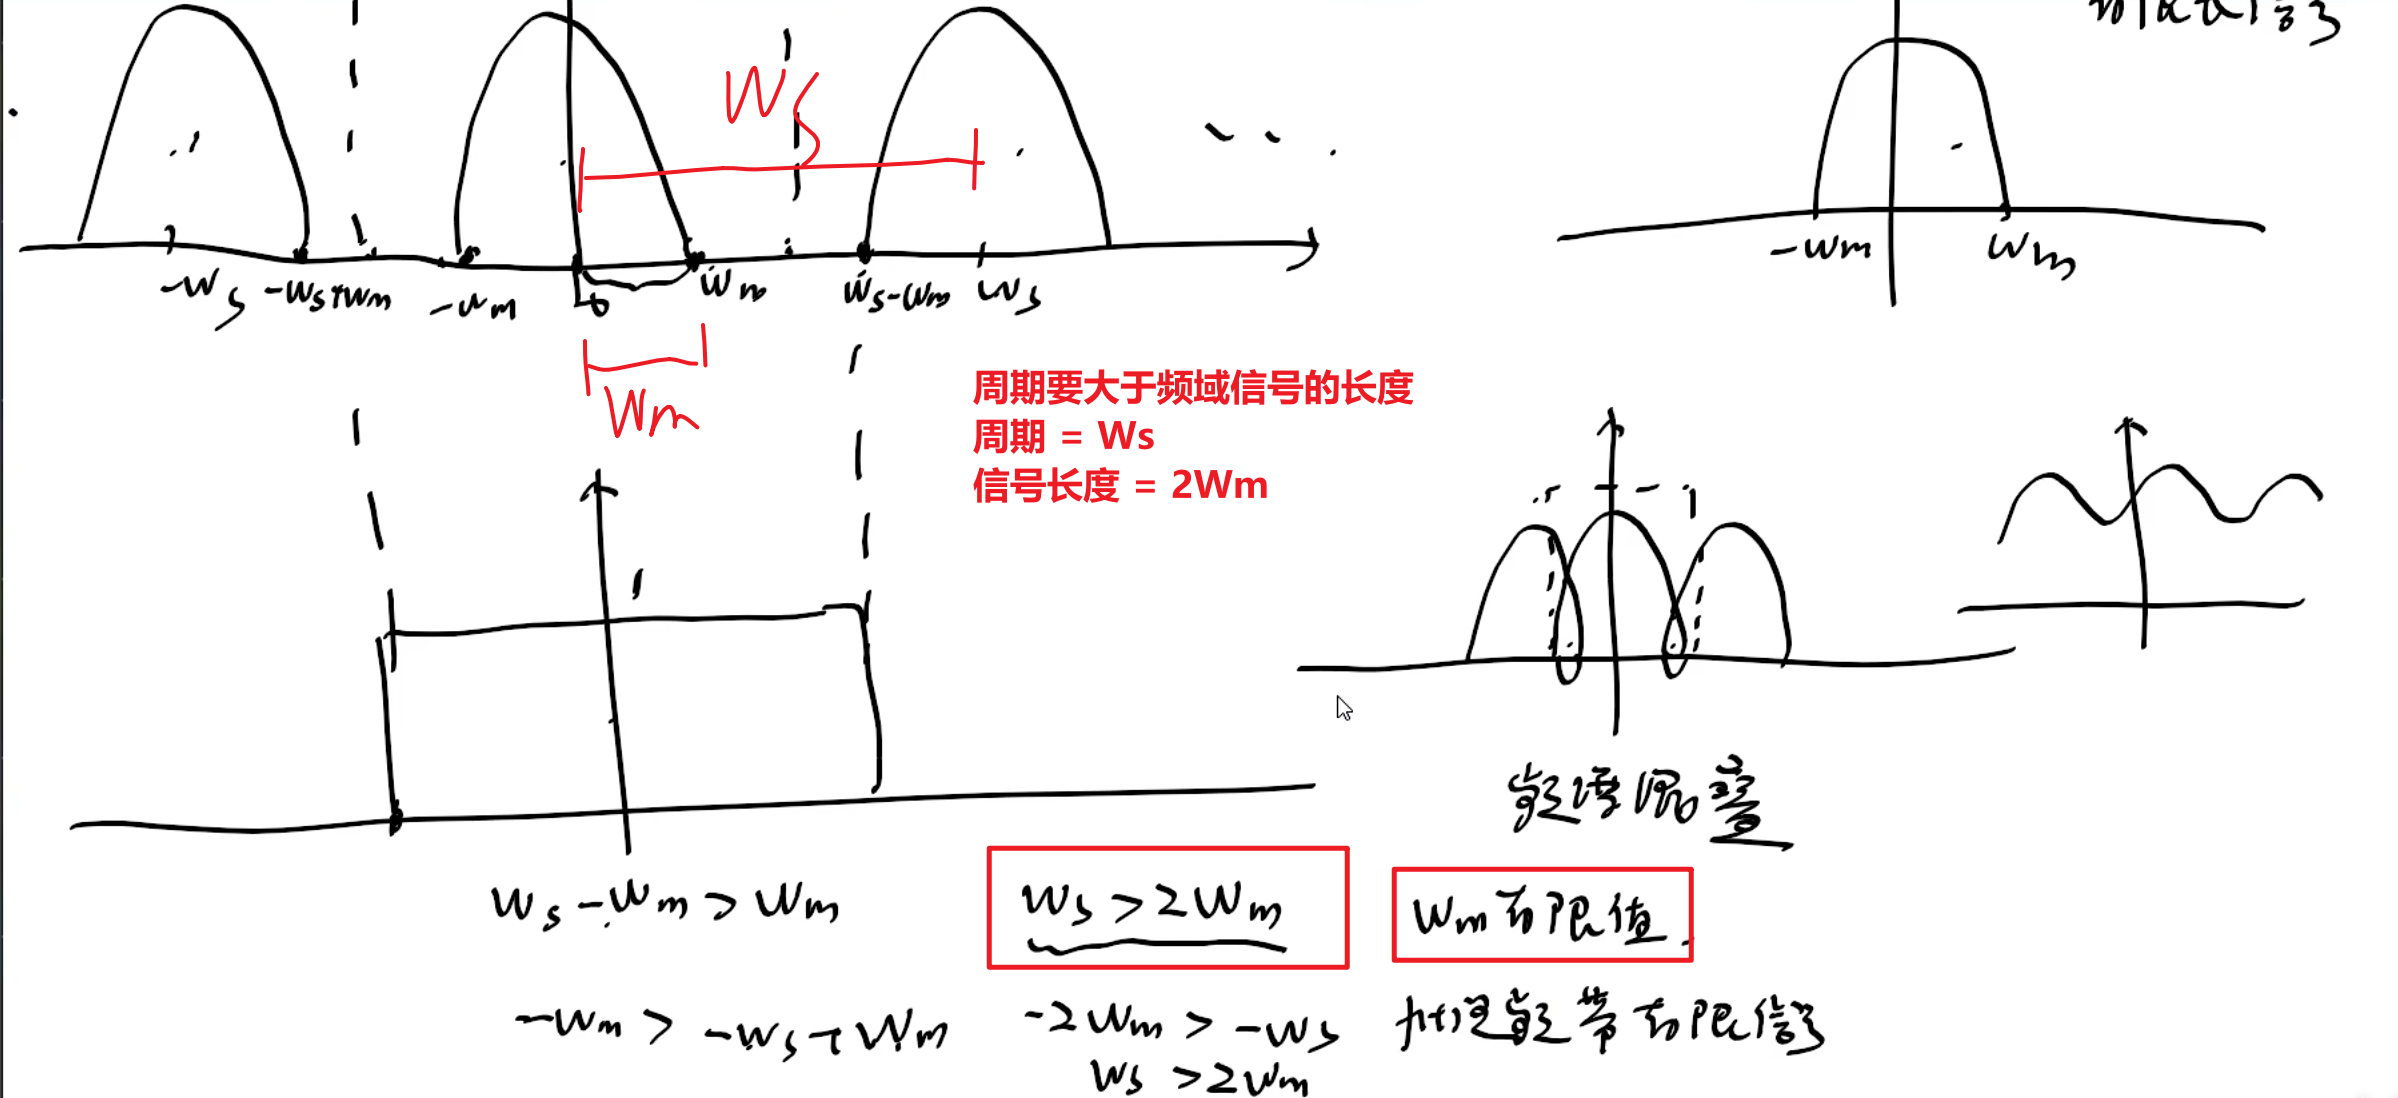 有限长信号
Ws
-ws
-ws+wm
-wm
0
wm
ws-wm
ws
-wm
wm
Wm
周期要大于频域信号的长度
周期 = Ws
信号长度 = 2Wm
1
频谱混叠
ws-wm > wm
ws > 2wm
wm有限值.
-wm > -ws+wm
-2wm > -ws
处理频带有限信号
ws > 2wm